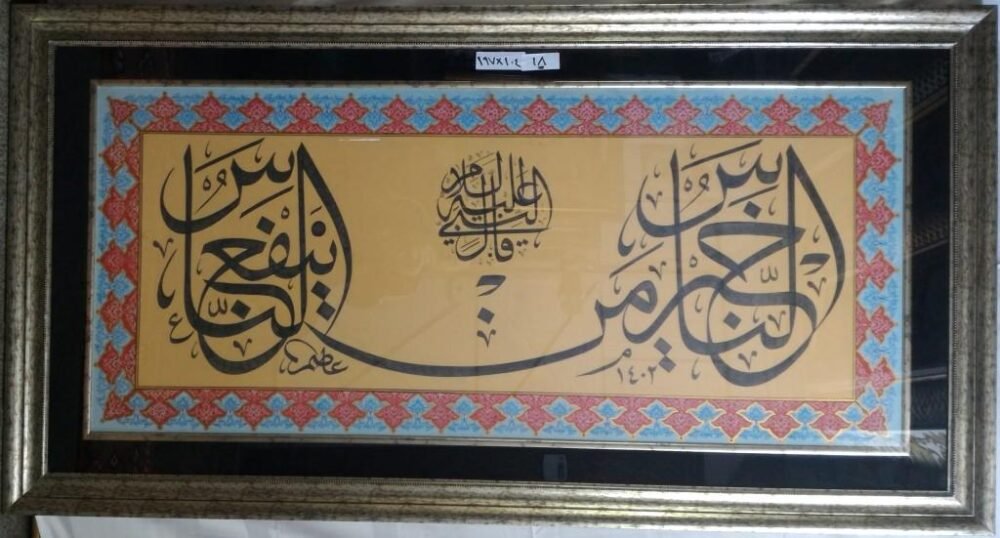 ١٩٧×١٠٤ ١٥
قال النبي عليه السلام
خير الناس من ينفع الناس
١٤٠٢